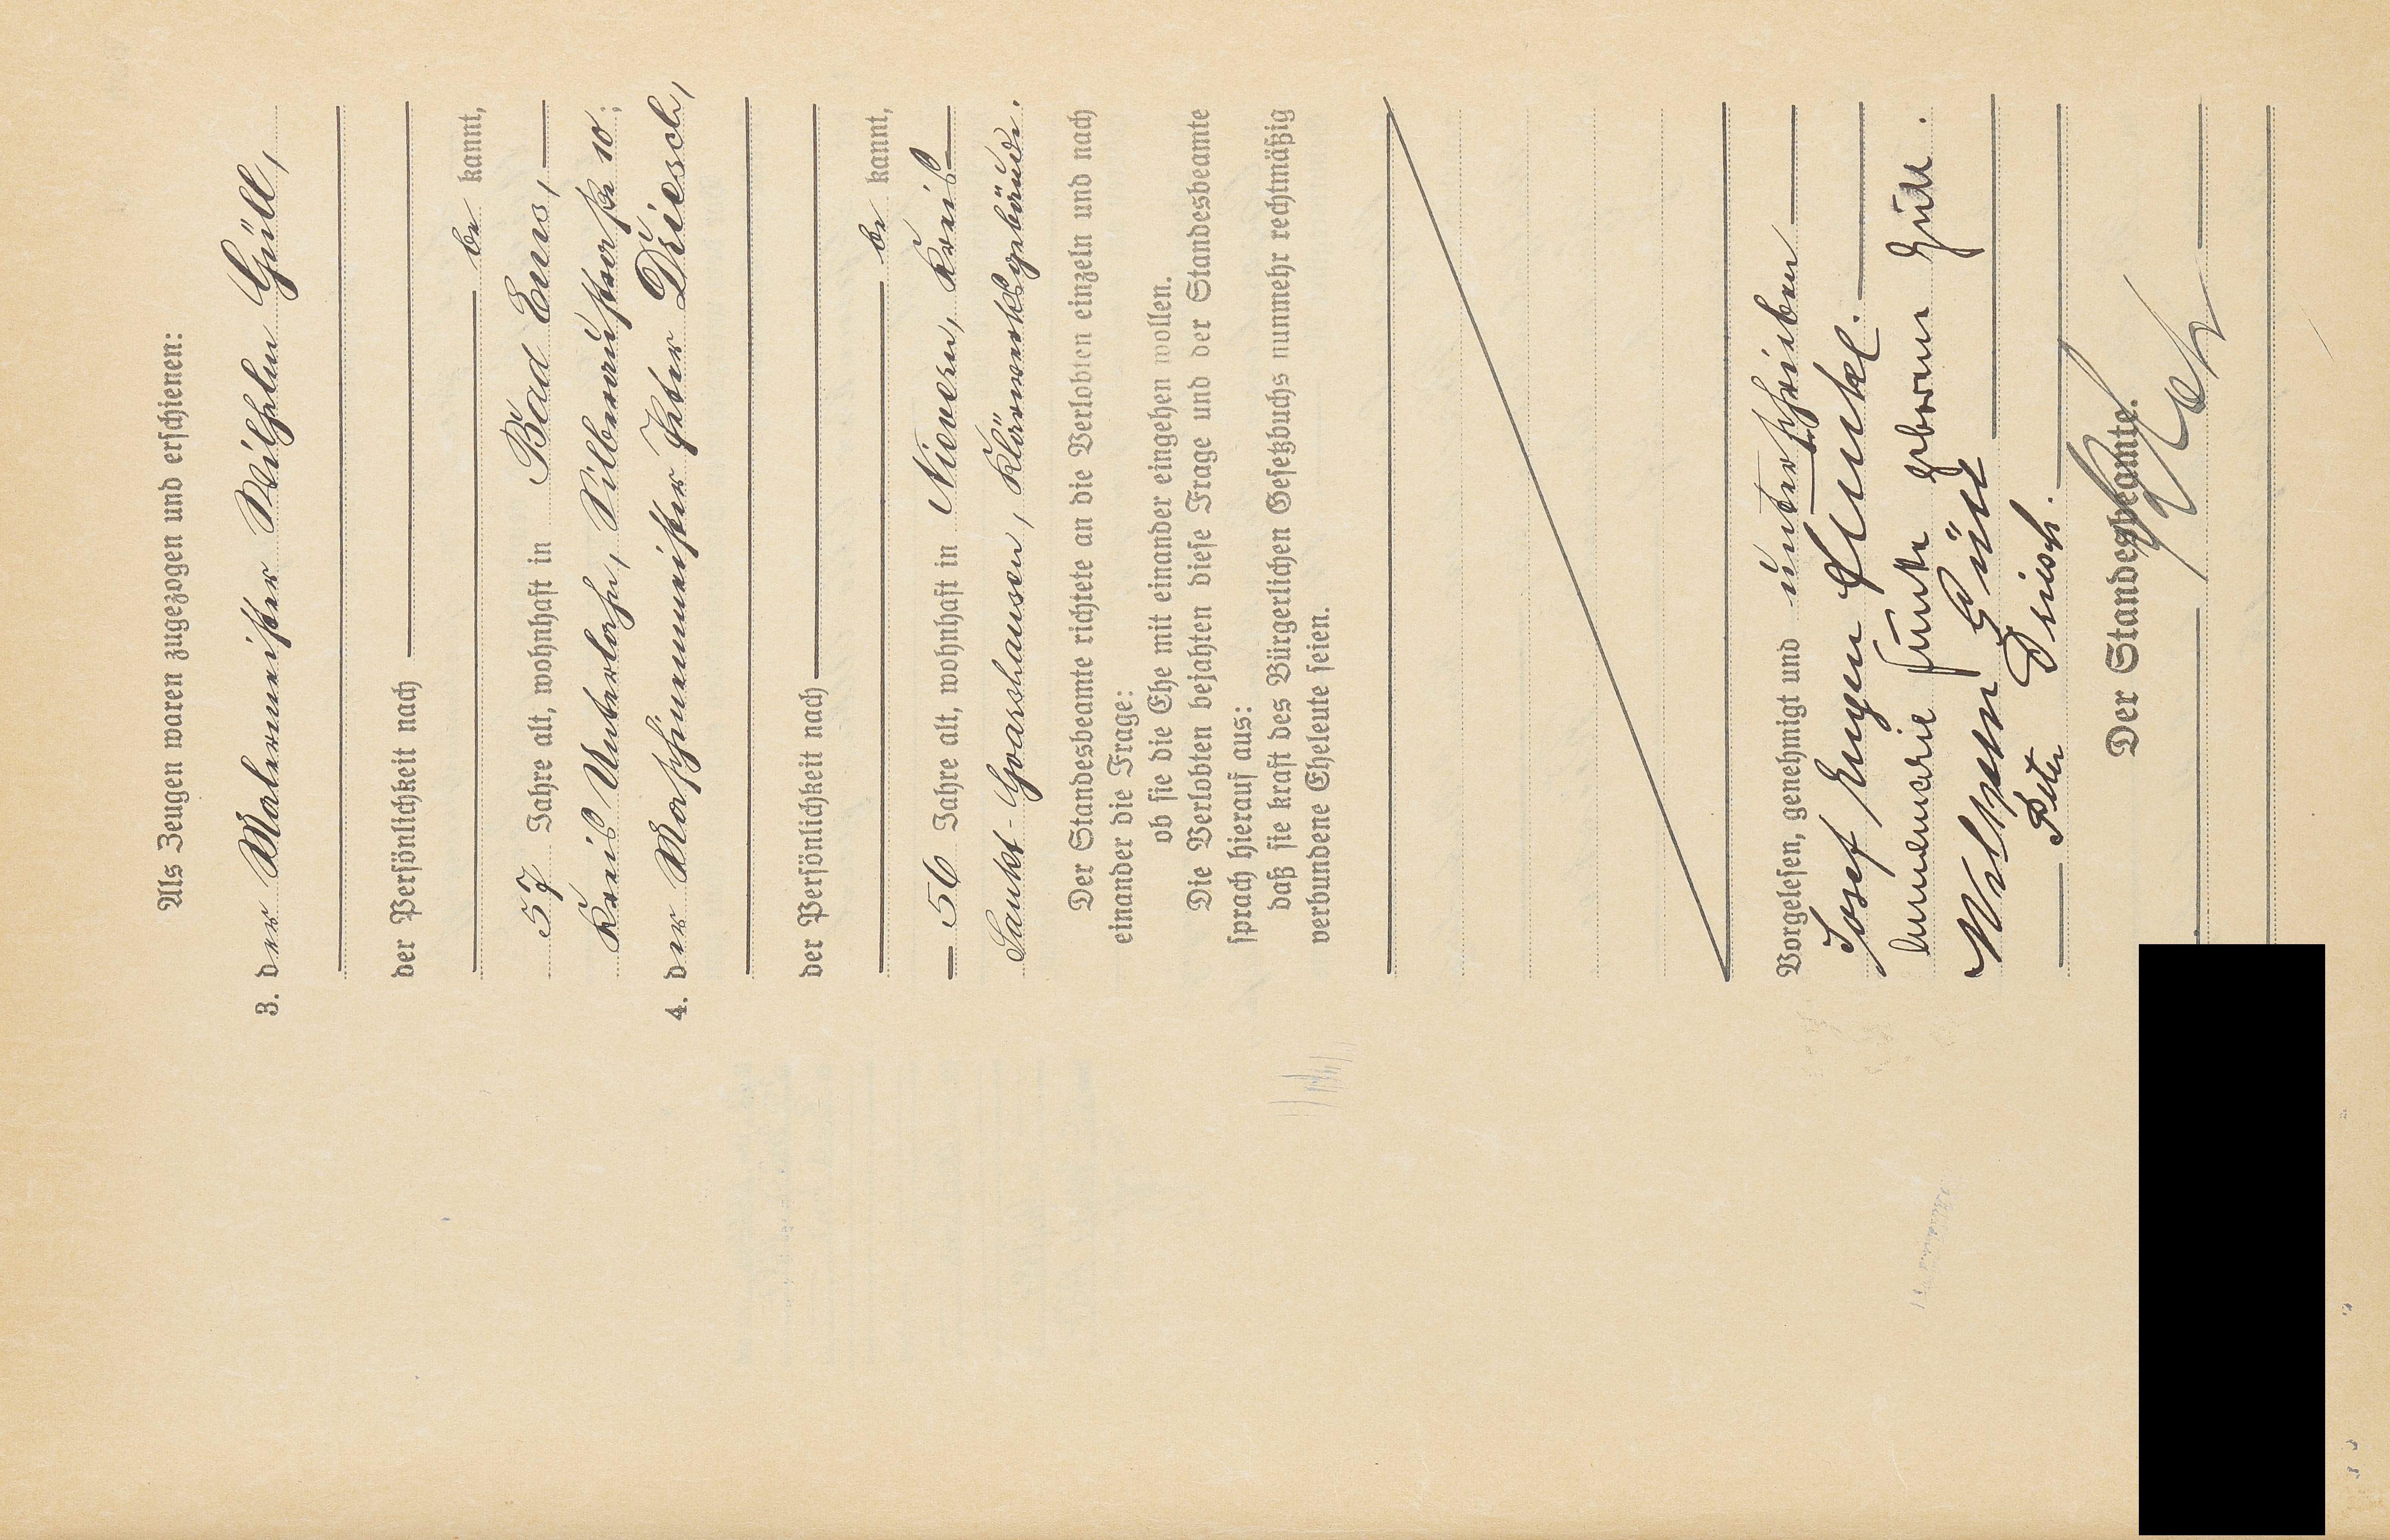 Als Zeugen waren zugezogen und erschienen:
3. der Malermeister Wilhelm Güll,
der Persönlichkeit nach
be kannt,
57 Jahre alt, wohnhaft in Bad Ems,
Kreis Unterlahn, Silberaustraße 10;
4. der Maschinenmeister Peter Driesch,
der Persönlichkeit nach
be kannt,
56 Jahre alt, wohnhaft in Nievern, Kreis
Sankt-Goarshausen, Klärwerksgebäude.
Der Standesbeamte richtete an die Verlobten einzeln und nach
einander die Frage:
ob sie die Ehe mit einander eingehen wollen.
Die Verlobten bejahten diese Frage und der Standesbeamte
sprach hierauf aus:
daß sie kraft des Bürgerlichen Gesetzbuchs nunmehr rechtmäßig
verbundene Eheleute seien.
Vorgelesen, genehmigt und unterschrieben
Josef Eugen
Annemarie geborene Güll.
Wilhelm Güll
Peter Driesch.
Der Standesbeamte.